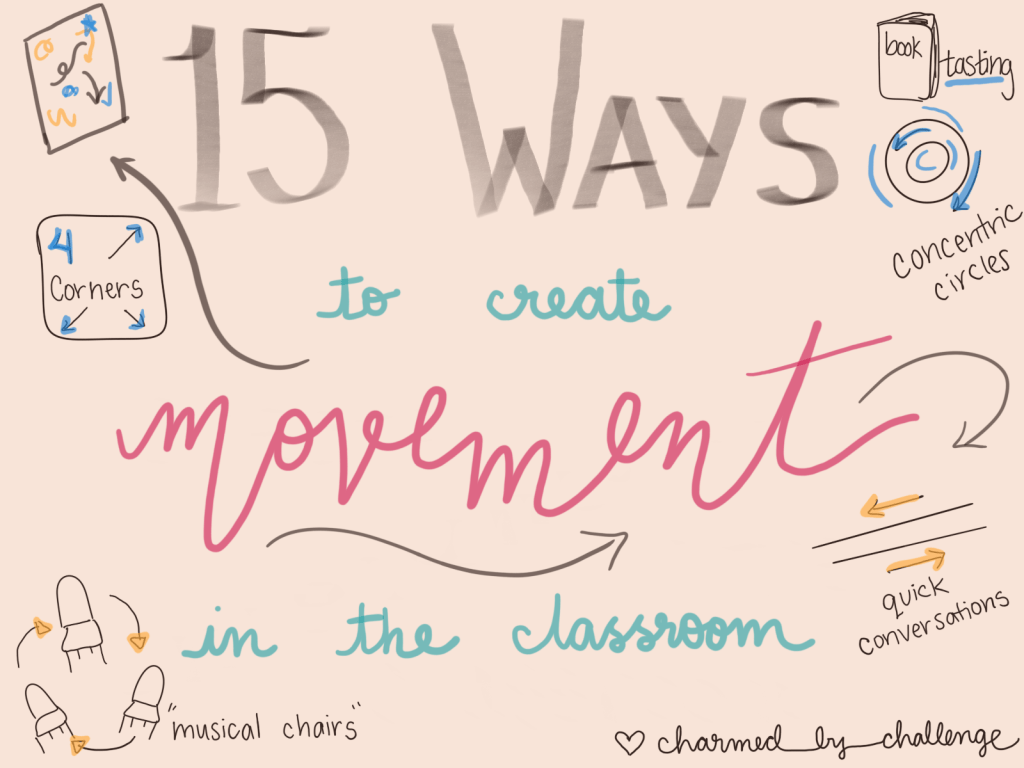 15 WAYS
to create
movement
in the classroom
book
tasting
concentric
circles
4
Corners
quick
conversations
"musical chairs"
♡ charmed by challenge